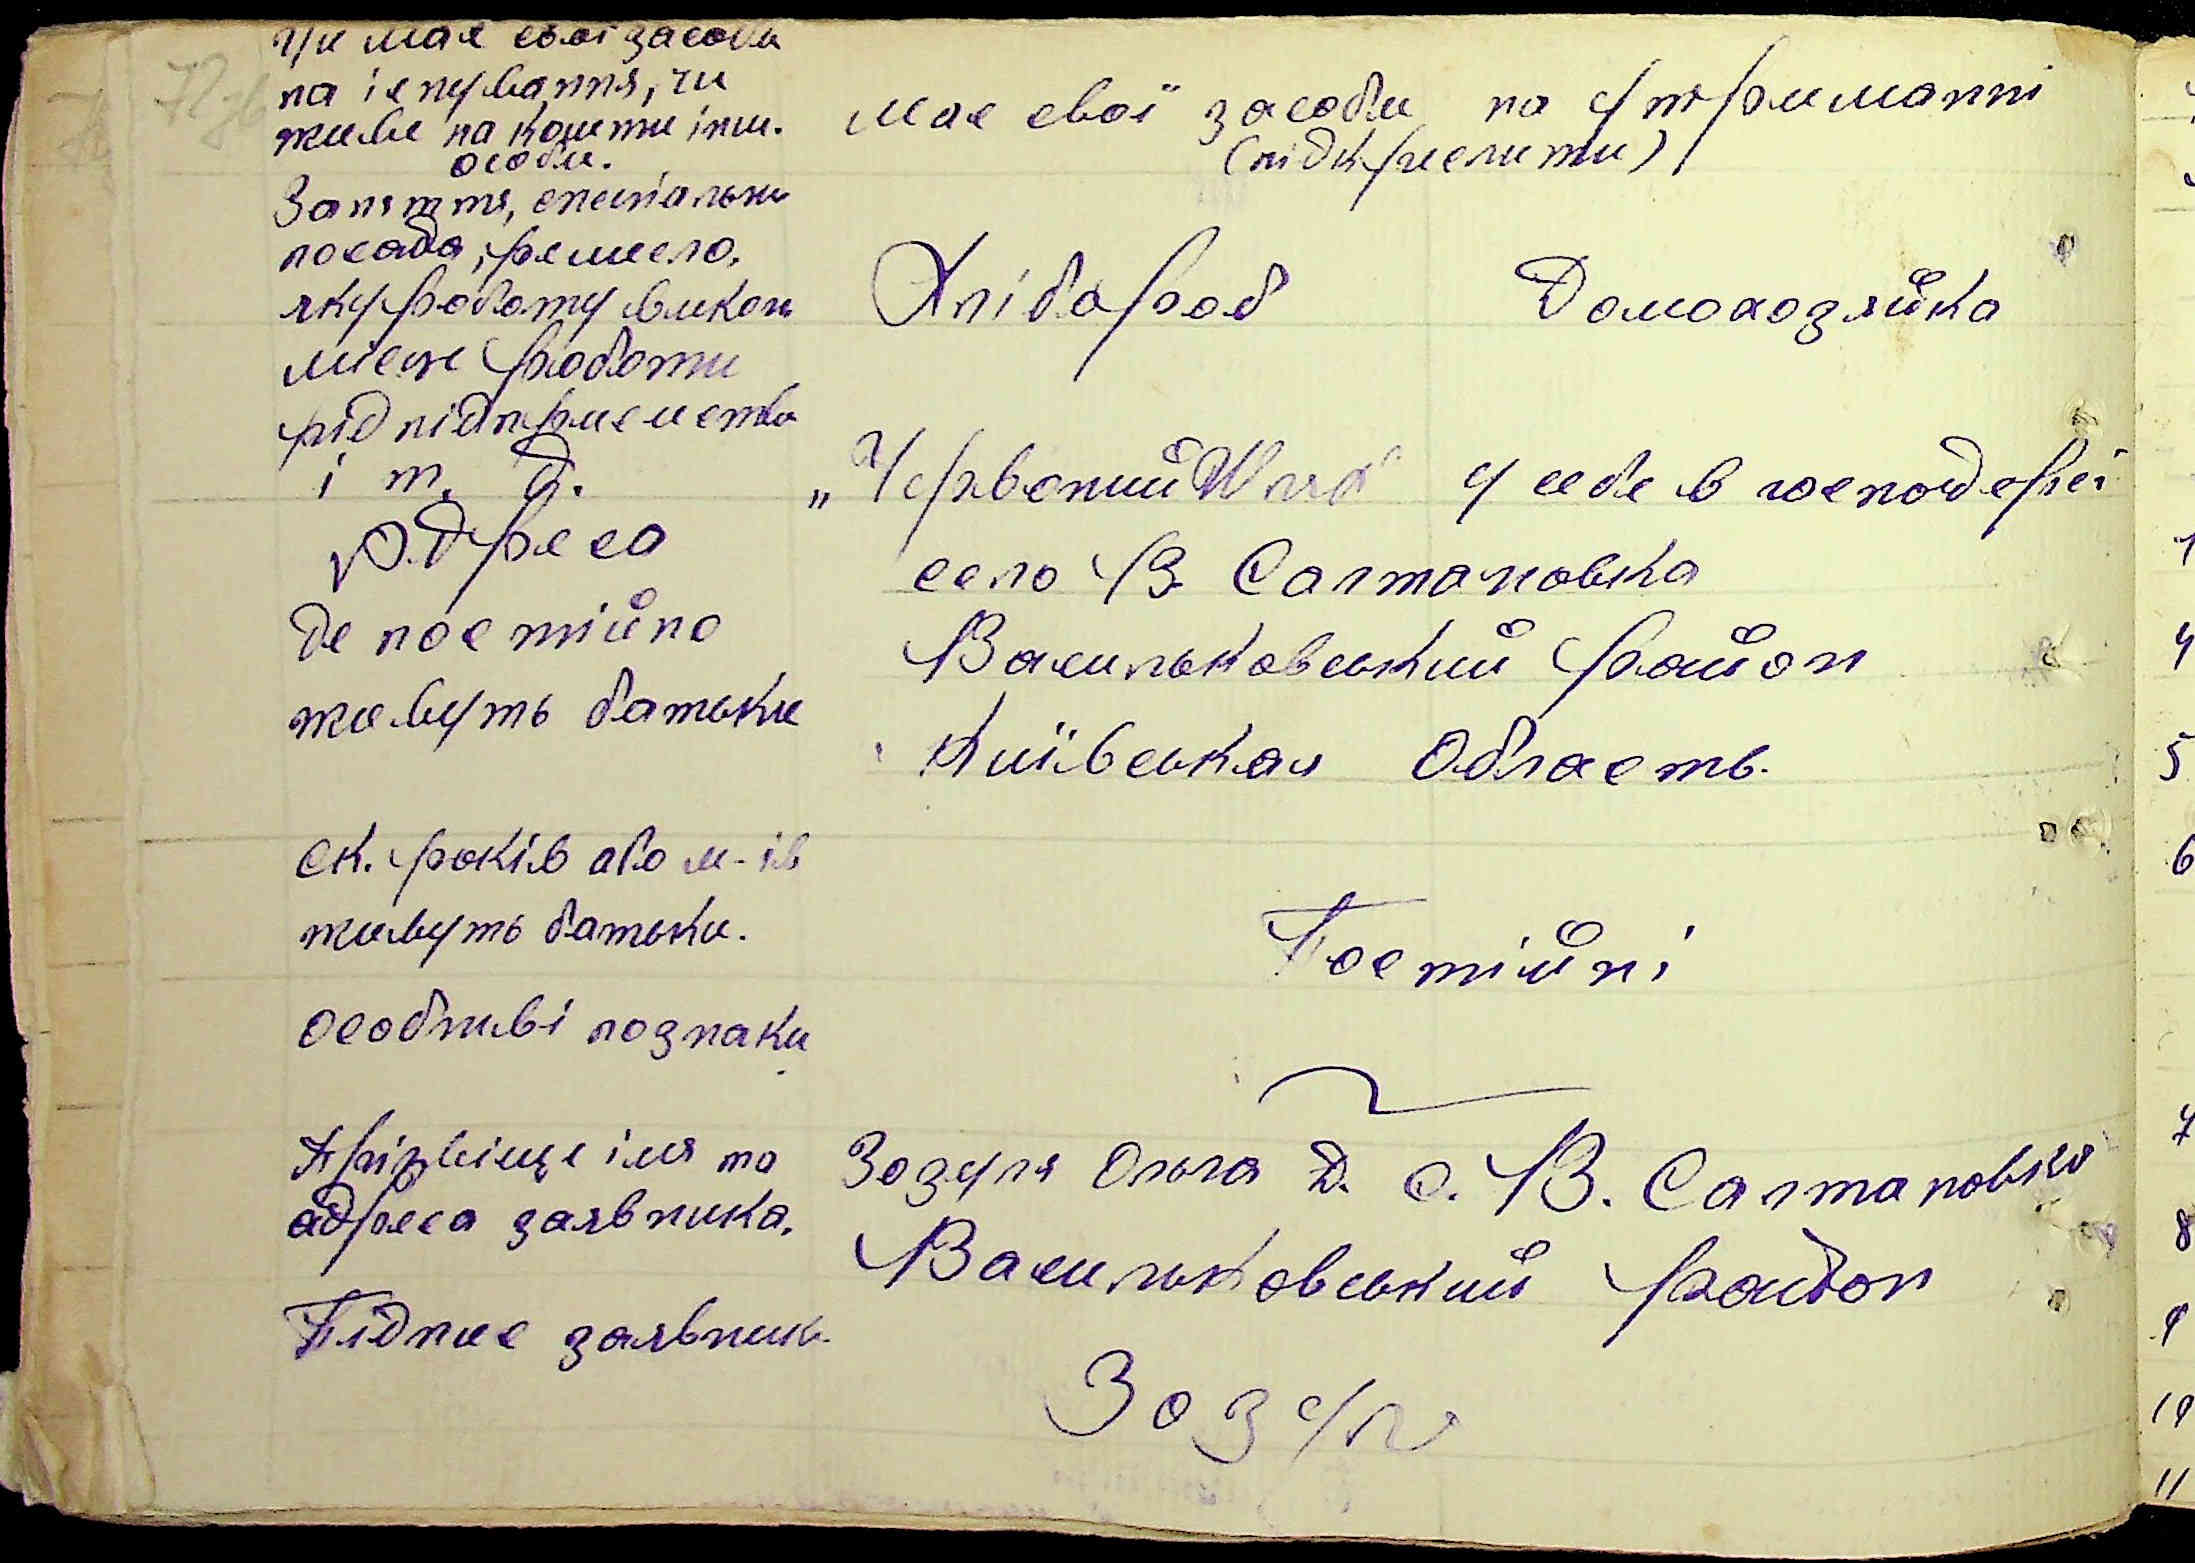 72 зв
Чи має свої засоби
на існування, чи
живе на кошти інш.
особи.
має свої засоби на утриманні
(підкреслити)
Заняття, спеціальн
посада, ремесло,
яку роботу викон
місце роботи
рід підприємства
і т. д.
Хлібороб Домохозяйка
„Червоний Шлях" У себе в господарсі
Адреса
де постійно
живуть батьки
село В Салтановка
Васильковський район
Київськая Область.
Ск. років або м-ів
живуть батьки.
Постійні
Особливі познаки
Прізвіще імя та
адреса заявника.
Зозуля Ольга Д. С. В. Салтановка
Васильковський район
Підпис заявник.
Зозуля
4
5
6
7
8
9
10
11